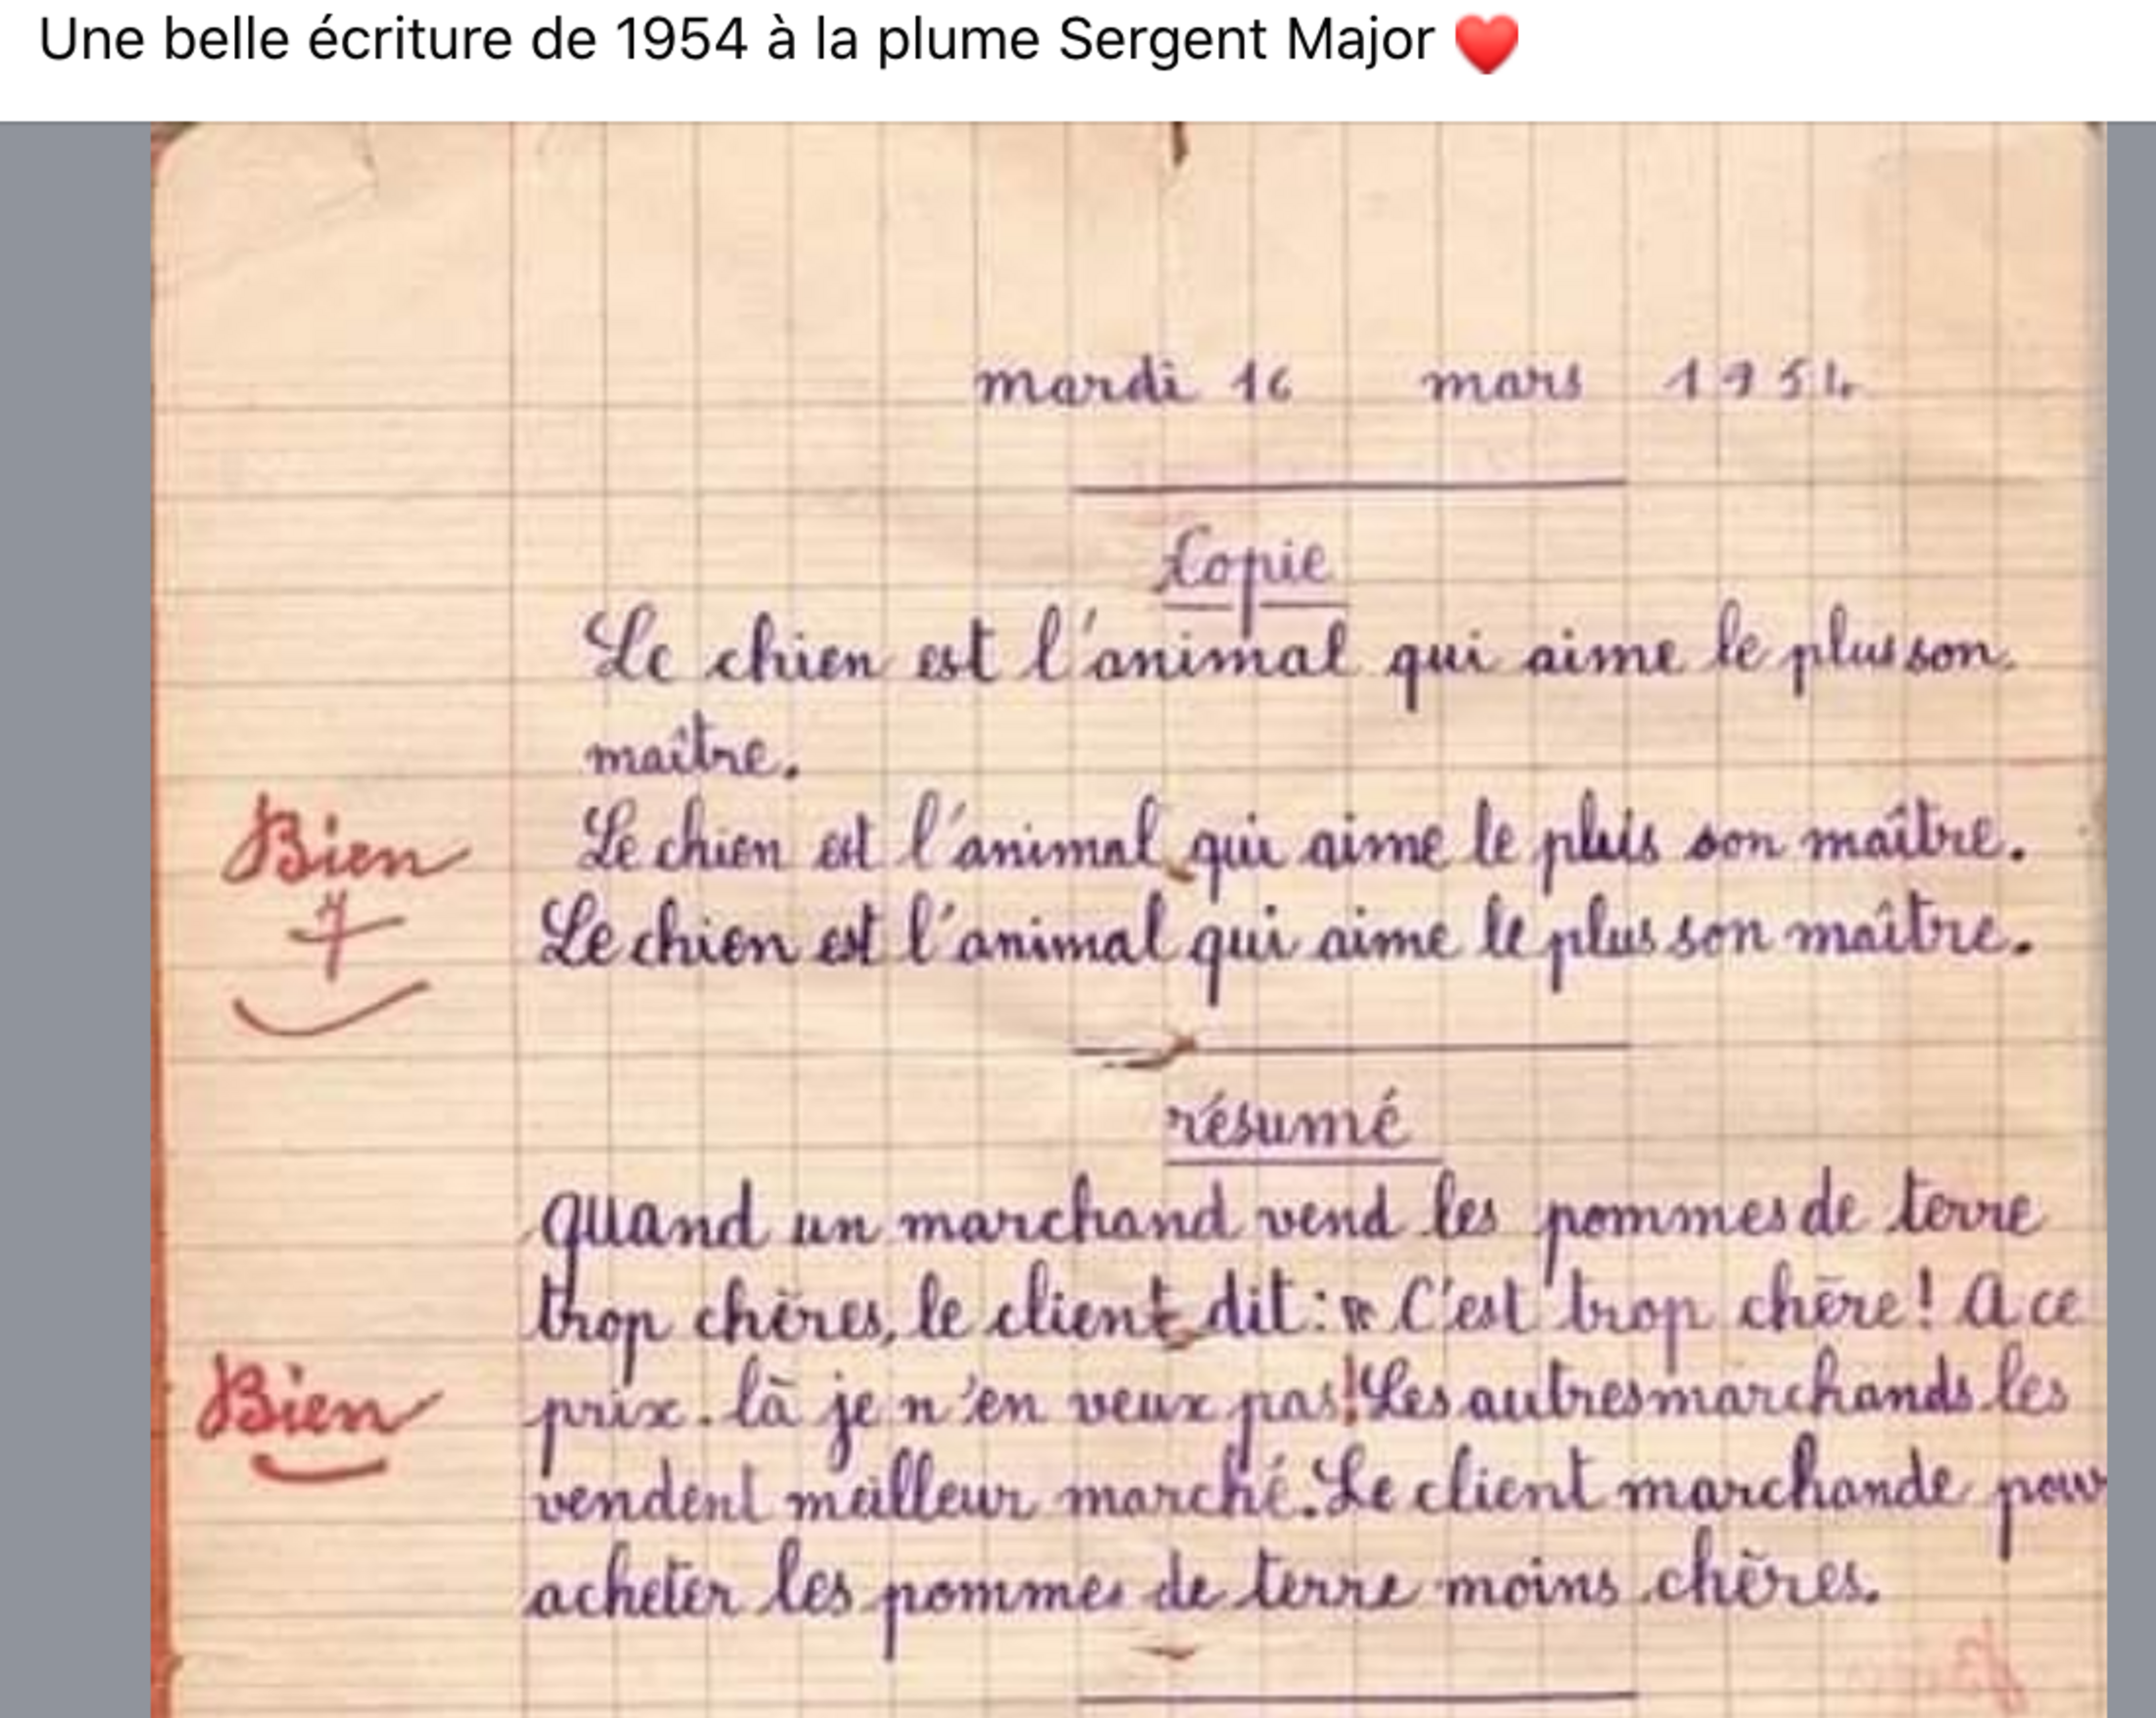 Une belle écriture de 1954 à la plume Sergent Major ❤️
mardi 16 mars 1954
Copie
Le chien est l'animal qui aime le plus son
maître.
Le chien est l'animal qui aime le plus son maître.
Bien
Le chien est l'animal qui aime le plus son maître.
7
résumé
quand un marchand vend les pommes de terre
trop chères, le client dit : « C'est trop chère ! A ce
prix-là je n'en veux pas ! Les autres marchands les
Bien
vendent meilleur marché. Le client marchande pour
acheter les pommes de terre moins chères.